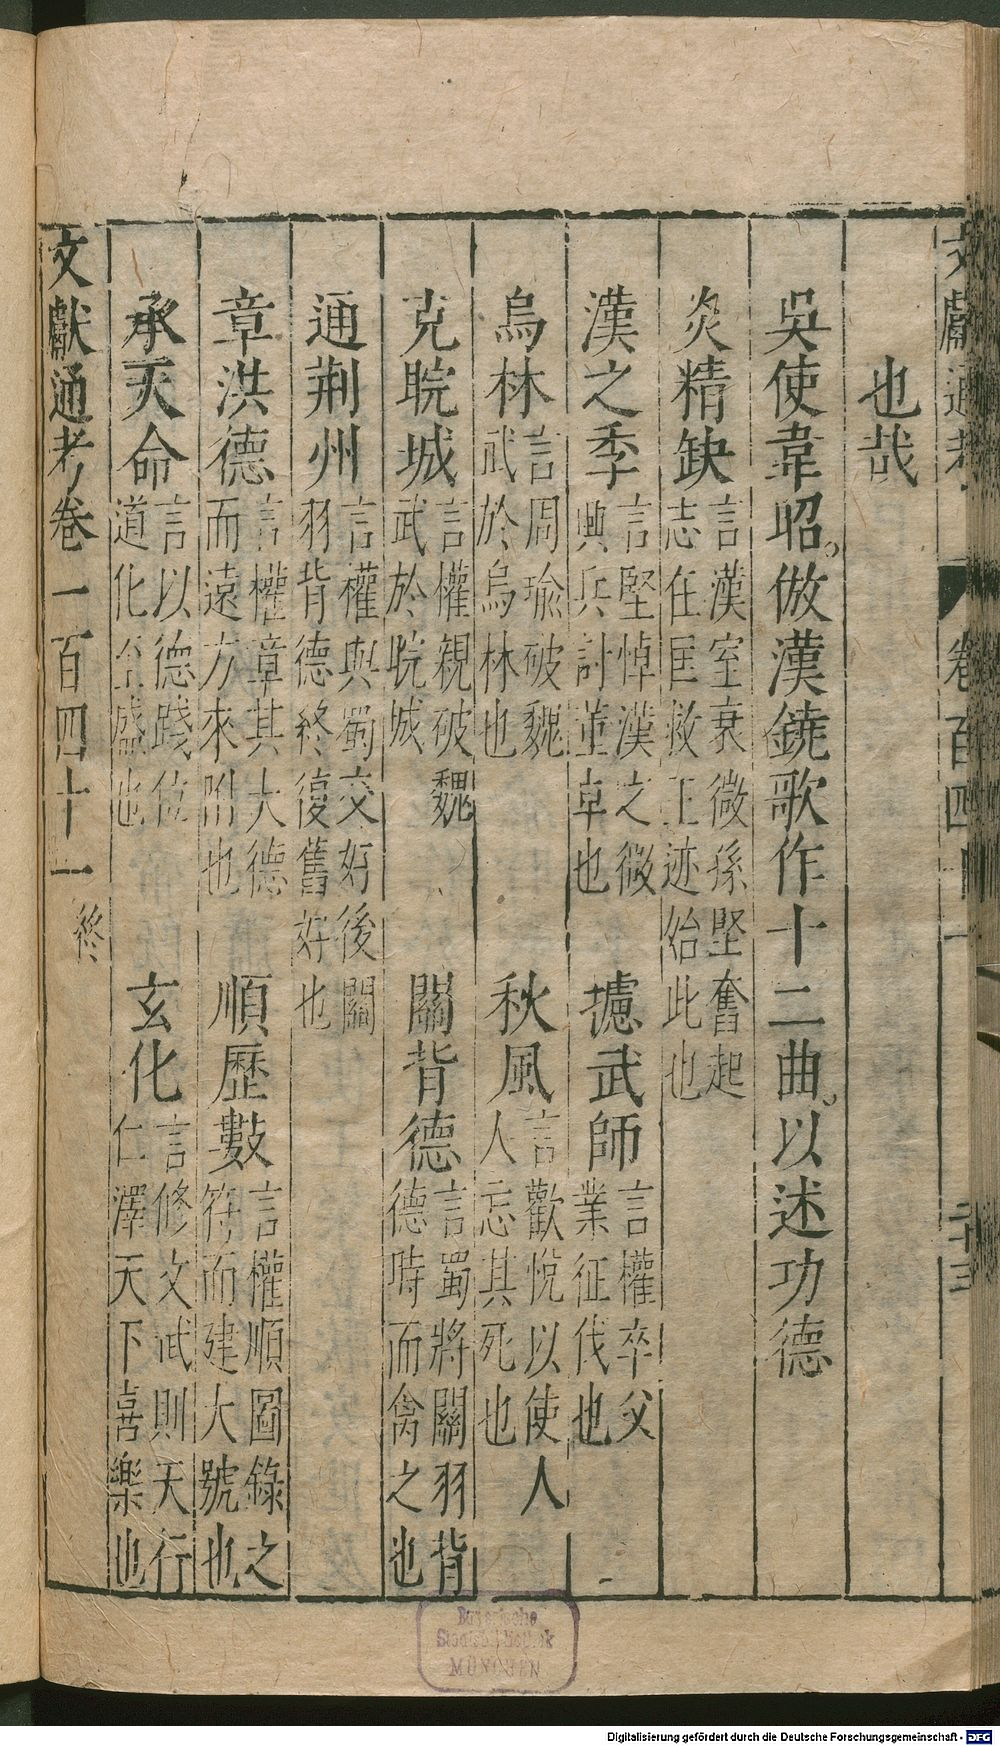 文獻通考 卷百四十一 二十三
也哉
吳使韋昭倣漢鐃歌作十二曲以述功德
炎精缺 言漢室衰微孫堅奮起志在匡救王迹始此也
漢之季 言堅悼漢之微興兵討董卓也 攄武師 言權卒父業征伐也
烏林 言周瑜破魏武於烏林也 秋風 言歡悅以使人人忘其死也
克睆城 言權親破魏武於睆城 關背德 言蜀將關羽背德時而禽之也
通荆州 言權與蜀交好後關羽背德終復舊好也
章洪德 言權章其大德而遠方來附也 順歷數 言權順圖錄之符而建大號也
承天命 言以德踐位道化至盛也 玄化 言修文武則天行仁澤天下喜樂也
文獻通考卷一百四十一 終
Bayerische
Staatsbibliothek
MÜNCHEN
Digitalisierung gefördert durch die Deutsche Forschungsgemeinschaft - DFG